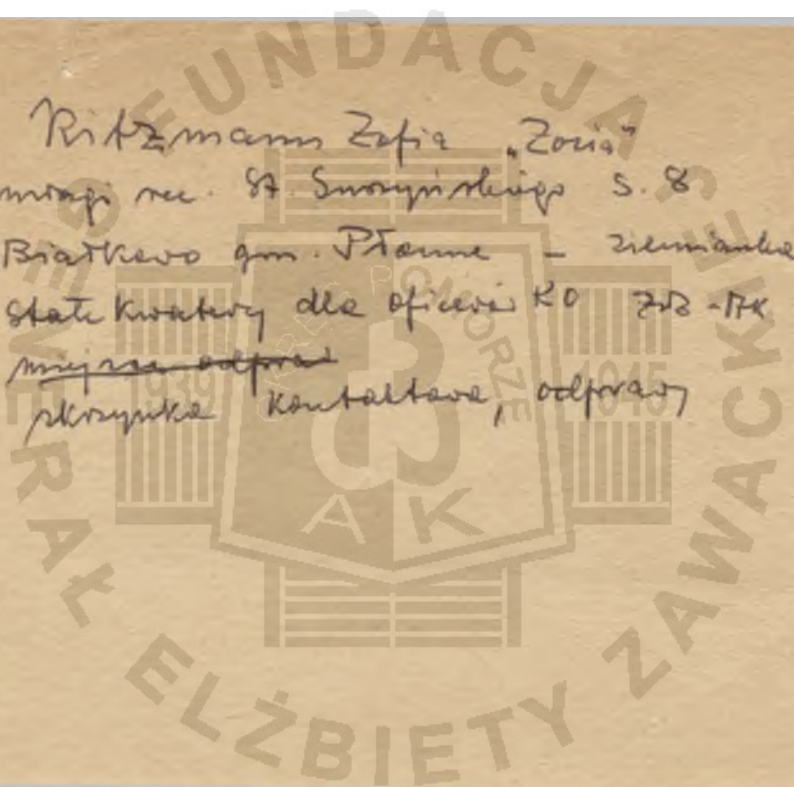 Ritzmann Zofia "Zosia"
uwagi rec. St. Suszyńskiego s. 8
Białkowo gm. Płonne - ziemianka
stałe kwatery dla oficerów KO ZWZ-AK
miejsce odpraw
skrzynka kontaktowa, odprawy
FUNDACJA GENERAŁ ELŻBIETY ZAWACKIEJ
OKRĘG POMORZE
1939 1945
AK